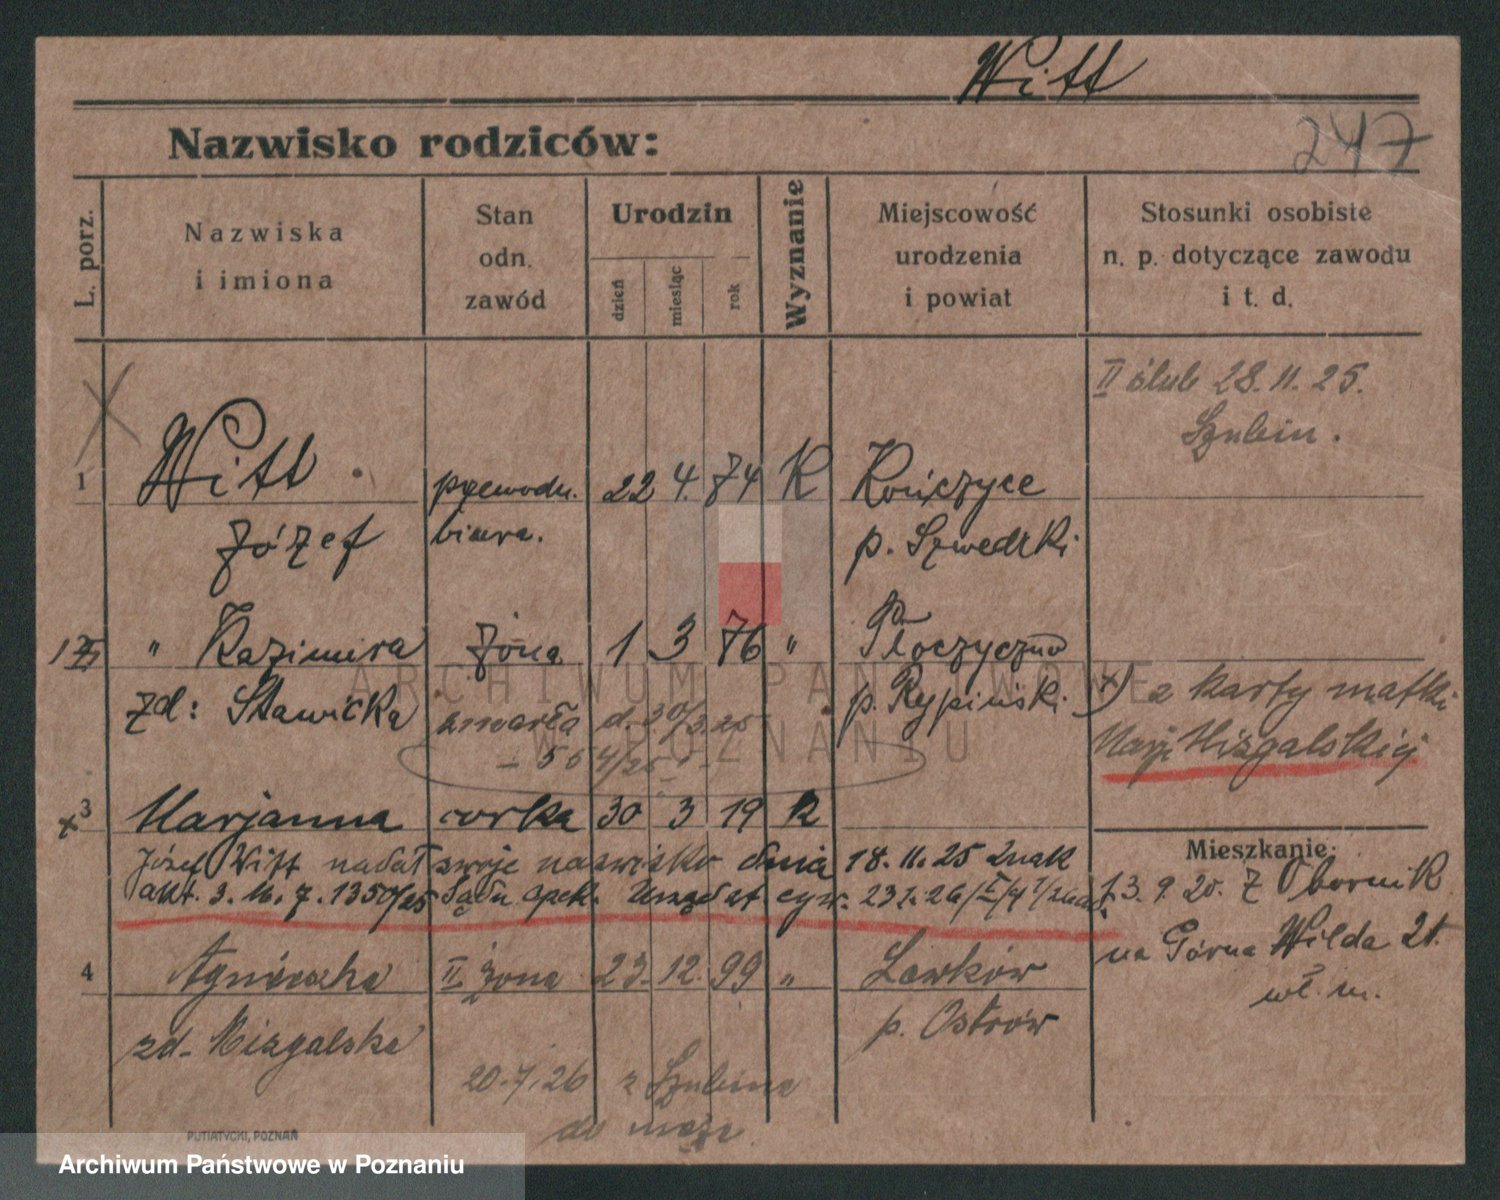 Witt
Nazwisko rodziców:
247
L. porz.
Nazwiska
i imiona
Stan
odn.
zawód
Urodzin
dzień
miesiąc
rok
Wyznanie
Miejscowość
urodzenia
i powiat
Stosunki osobiste
n. p. dotyczące zawodu
i t. d.
II ślub 28.11.25.
Szubin.
1 Witt 22 4. 74 K
Józef biura. p. Szwedzki
" Kazimira żona 1 3 76 "
zd: Stawicka zmarła d. 30/3.25 p. Rypiński
- 564/25 -
x) z karty matki
Marji Mizgalskiej
3 Marjanna corka 30 3 19 K
x
Józef Witt nadał swoje nazwisko dnia 18.11.25 Znak
akt. 3. 16. 7. 1350/25 Sądu opek.
Mieszkanie:
13. 9. 20. Z Obornik
na Górna Wilda 21.
4 Agnieszka II żona 23. 12. 99 "
p. Ostrów
zd. Mizgalska
20.7.26 z Szubina
do męża
PUTIATYCKI, POZNAŃ
ARCHIWUM PAŃSTWOWE
W POZNANIU
Archiwum Państwowe w Poznaniu